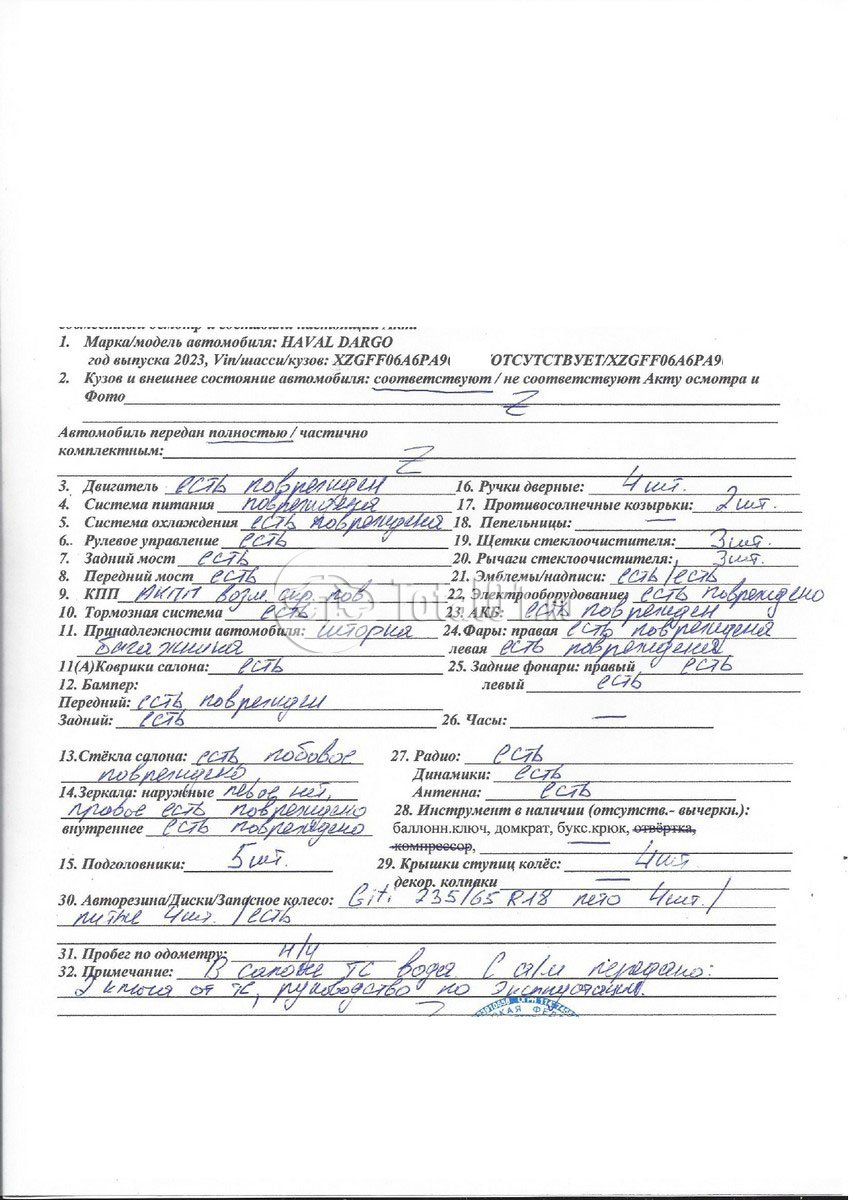 1. Марка/модель автомобиля: HAVAL DARGO
год выпуска 2023, Vin/шасси/кузов: XZGFF06A6PA9 /ОТСУТСТВУЕТ/XZGFF06A6PA9
2. Кузов и внешнее состояние автомобиля: соответствуют / не соответствуют Акту осмотра и
Фото Z
Автомобиль передан полностью / частично
комплектным: Z
3. Двигатель есть поврежден
4. Система питания повреждена
5. Система охлаждения есть повреждена
6. Рулевое управление есть
7. Задний мост есть
8. Передний мост есть
9. КПП АКПП возм. скр. пов
10. Тормозная система есть
11. Принадлежности автомобиля: шторка
багажника
11(А)Коврики салона: есть
12. Бампер:
Передний: есть поврежден
Задний: есть
13.Стёкла салона: есть лобовое
повреждено
14.Зеркала: наружные левое нет,
правое есть повреждено
внутреннее есть повреждено
15. Подголовники: 5 шт.
16. Ручки дверные: 4 шт.
17. Противосолнечные козырьки: 2 шт.
18. Пепельницы: —
19. Щетки стеклоочистителя: 3 шт.
20. Рычаги стеклоочистителя: 3 шт.
21. Эмблемы/надписи: есть/есть
22. Электрооборудование есть повреждено
23. АКБ: есть поврежден
24.Фары: правая есть повреждена
левая есть повреждения
25. Задние фонари: правый есть
левый есть
26. Часы: —
27. Радио: есть
Динамики: есть
Антенна: есть
28. Инструмент в наличии (отсутств.- вычеркн.):
баллонн.ключ, домкрат, букс.крюк, отвёртка,
компрессор, —
29. Крышки ступиц колёс: 4 шт
декор. колпаки —
30. Авторезина/Диски/Запасное колесо: Giti 235/65 R18 лето 4шт./
литые 4шт. / есть
31. Пробег по одометру: н/у
32. Примечание: В салоне ТС вода С а/м передано:
2 ключа от ТС, руководство по эксплуатации.